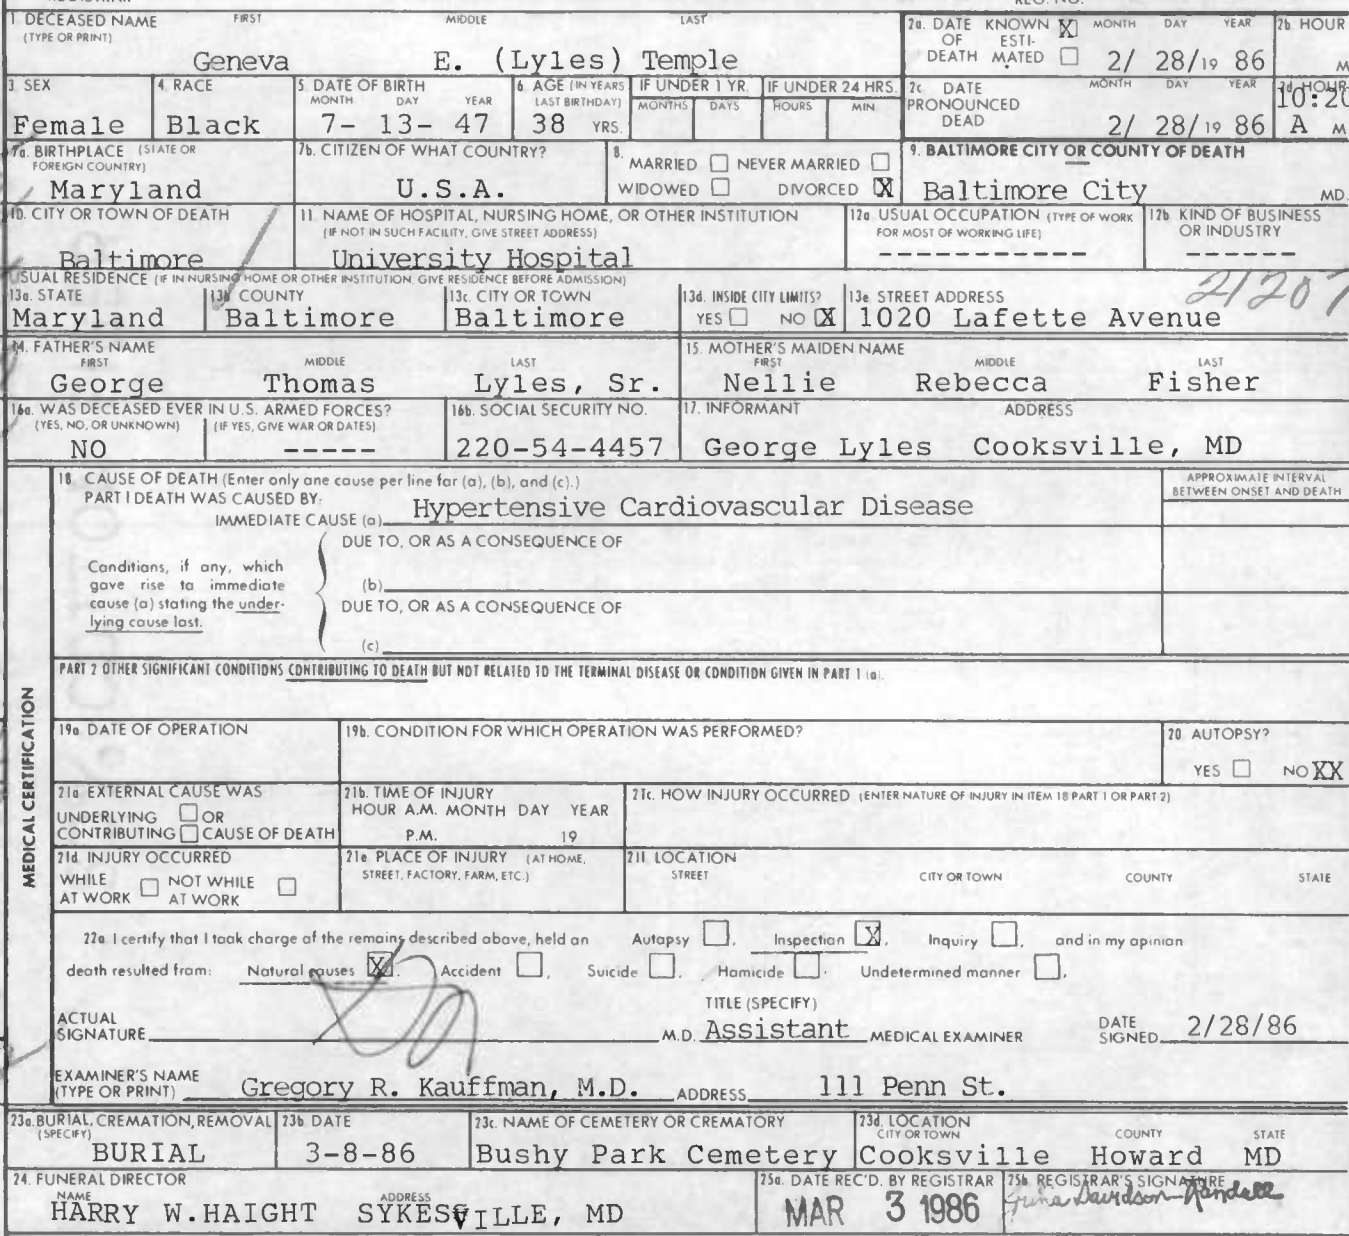 1. DECEASED NAME FIRST MIDDLE LAST
(TYPE OR PRINT)
Geneva E. (Lyles) Temple
2a. DATE KNOWN X MONTH DAY YEAR 2b HOUR
OF ESTI-
DEATH MATED 2/ 28/19 86 M
3. SEX
Female
4. RACE
Black
5. DATE OF BIRTH
MONTH DAY YEAR
7- 13- 47
6. AGE (IN YEARS
LAST BIRTHDAY)
38 YRS.
IF UNDER 1 YR.
MONTHS DAYS
IF UNDER 24 HRS.
HOURS MIN.
2c DATE MONTH DAY YEAR 2d HOUR
PRONOUNCED
DEAD 2/ 28/19 86 10:20 A M
7a. BIRTHPLACE (STATE OR
FOREIGN COUNTRY)
Maryland
7b. CITIZEN OF WHAT COUNTRY?
U.S.A.
8.
MARRIED NEVER MARRIED
WIDOWED DIVORCED X
9. BALTIMORE CITY OR COUNTY OF DEATH
Baltimore City MD.
10. CITY OR TOWN OF DEATH
Baltimore
11 NAME OF HOSPITAL, NURSING HOME, OR OTHER INSTITUTION
(IF NOT IN SUCH FACILITY, GIVE STREET ADDRESS)
University Hospital
12a USUAL OCCUPATION (TYPE OF WORK
FOR MOST OF WORKING LIFE)
-----------
12b KIND OF BUSINESS
OR INDUSTRY
------
USUAL RESIDENCE (IF IN NURSING HOME OR OTHER INSTITUTION, GIVE RESIDENCE BEFORE ADMISSION)
13a. STATE
Maryland
13b COUNTY
Baltimore
13c. CITY OR TOWN
Baltimore
13d. INSIDE CITY LIMITS?
YES NO X
13e STREET ADDRESS 21207
1020 Lafette Avenue
14. FATHER'S NAME
FIRST MIDDLE LAST
George Thomas Lyles, Sr.
15. MOTHER'S MAIDEN NAME
FIRST MIDDLE LAST
Nellie Rebecca Fisher
16a. WAS DECEASED EVER IN U.S. ARMED FORCES?
(YES, NO, OR UNKNOWN) (IF YES, GIVE WAR OR DATES)
NO -----
16b. SOCIAL SECURITY NO.
220-54-4457
17. INFORMANT ADDRESS
George Lyles Cooksville, MD
MEDICAL CERTIFICATION
18. CAUSE OF DEATH (Enter only one cause per line for (a), (b), and (c).)
APPROXIMATE INTERVAL
BETWEEN ONSET AND DEATH
PART I DEATH WAS CAUSED BY:
IMMEDIATE CAUSE (a) Hypertensive Cardiovascular Disease
DUE TO, OR AS A CONSEQUENCE OF
Conditions, if any, which
gave rise to immediate
cause (a) stating the under-
lying cause last.
(b)
DUE TO, OR AS A CONSEQUENCE OF
(c)
PART 2 OTHER SIGNIFICANT CONDITIONS CONTRIBUTING TO DEATH BUT NOT RELATED TO THE TERMINAL DISEASE OR CONDITION GIVEN IN PART 1 (a).
19a DATE OF OPERATION
19b. CONDITION FOR WHICH OPERATION WAS PERFORMED?
20 AUTOPSY?
YES NO XX
21a EXTERNAL CAUSE WAS
UNDERLYING OR
CONTRIBUTING CAUSE OF DEATH
21b. TIME OF INJURY
HOUR A.M. MONTH DAY YEAR
P.M. 19
21c. HOW INJURY OCCURRED (ENTER NATURE OF INJURY IN ITEM 18 PART 1 OR PART 2)
21d INJURY OCCURRED
WHILE NOT WHILE
AT WORK AT WORK
21e PLACE OF INJURY (AT HOME,
STREET, FACTORY, FARM, ETC.)
21f. LOCATION
STREET CITY OR TOWN COUNTY STATE
22a I certify that I took charge of the remains described above, held an Autopsy , Inspection X, Inquiry , and in my opinion
death resulted from: Natural causes X, Accident , Suicide , Homicide . Undetermined manner ,
TITLE (SPECIFY)
ACTUAL
SIGNATURE M.D. Assistant MEDICAL EXAMINER DATE SIGNED 2/28/86
EXAMINER'S NAME
(TYPE OR PRINT) Gregory R. Kauffman, M.D. ADDRESS 111 Penn St.
23a. BURIAL, CREMATION, REMOVAL
(SPECIFY)
BURIAL
23b DATE
3-8-86
23c. NAME OF CEMETERY OR CREMATORY
Bushy Park Cemetery
23d. LOCATION
CITY OR TOWN COUNTY STATE
Cooksville Howard MD
24. FUNERAL DIRECTOR
NAME ADDRESS
HARRY W.HAIGHT SYKESVILLE, MD
25a. DATE REC'D. BY REGISTRAR
MAR 3 1986
25b REGISTRAR'S SIGNATURE
Davidson-Randall